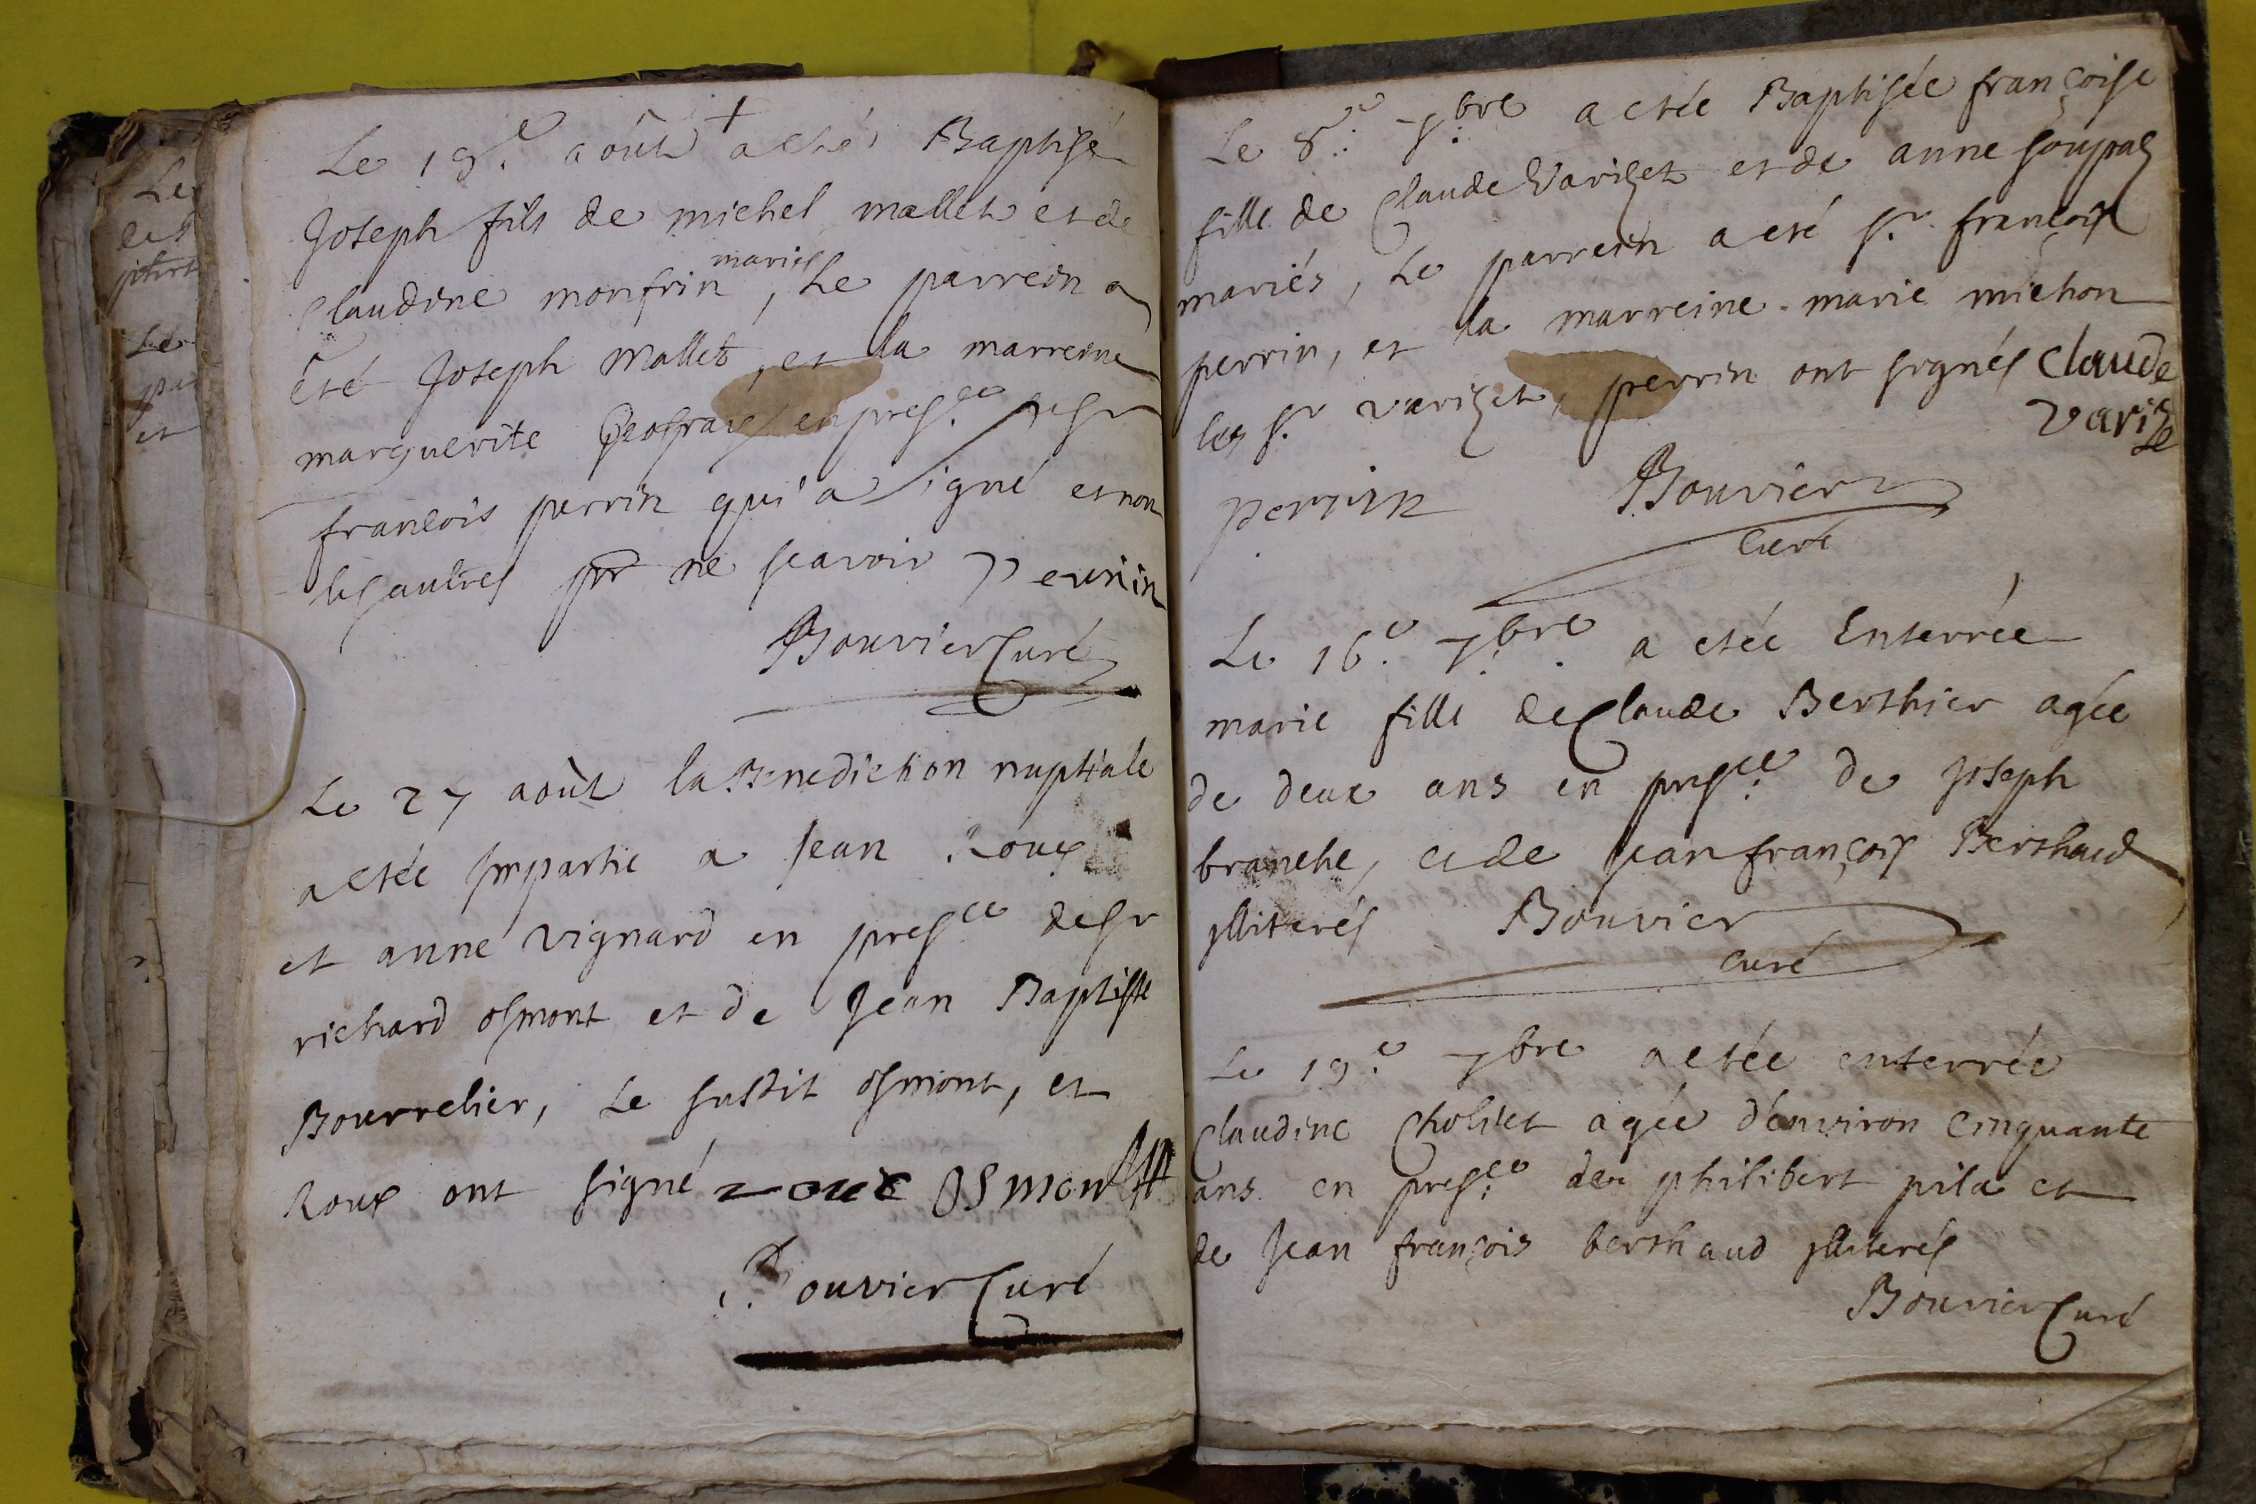 Le
et
Le
par
et
Le 19.e août a eté Baptisé
Joseph fils de michel mallet et de
Claudine monfrin mariés, Le parrein a
été Joseph Mallet, et la marreine
marguerite Geofray en pres.ce de sr
françois perrin qui a signé et non
les autres pr ne scavoir perrin
Bouvier Curé
Le 27 août la Benediction nuptiale
a etée impartie a Jean Roux
et anne vignard en presce de sr
richard osmont et de Jean Baptiste
Bourrelier, Le susdit osmont, et
Roux ont signé roux Osmont
Bouvier Curé
Le 8.e 7.bre a etée Baptisée françoise
fille de Claude Varizet et de anne soupaz
mariés, Le parrein a eté sr. françois
perrin, et la marreine marie michon
les sr varizet, perrin ont signés Claude
Varize
perrin Bouvier
curé
Le 16.e 7.bre a etée Enterrée
marie fille de Claude Berthier agée
de deux ans en pres.ce de Joseph
branche, et de jean françois Berthaud
illiterés Bouvier
curé
Le 19.e 7bre a etée enterrée
Claudine Chollet agée d'environ cinquante
ans en pres.ce de philibert pila et
de Jean françois berthaud illiterés
Bouvier Curé